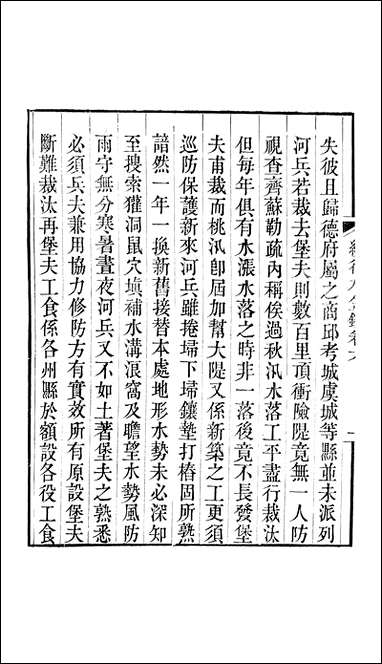 失彼且歸德府屬之商邱考城虞城等縣並未派列
河兵若裁去堡夫則數百里頂衝險隄竟無一人防
視查齊蘇勒疏內稱俟過秋汛水落工平盡行裁汰
但每年俱有水漲水落之時非一落後竟不長發堡
夫甫裁而桃汛卽屆加幫大隄又係新築之工更須
巡防保護新來河兵雖捲埽下埽鑲墊打樁固所熟
諳然一年一換新舊接替本處地形水勢未必深知
至搜索獾洞鼠穴塡補水溝浪窩及瞻望水勢風防
雨守無分寒暑晝夜河兵又不如土著堡夫之熟悉
必須兵夫兼用協力修防方有實效所有原設堡夫
斷難裁汰再堡夫工食係各州縣於額設各役工食